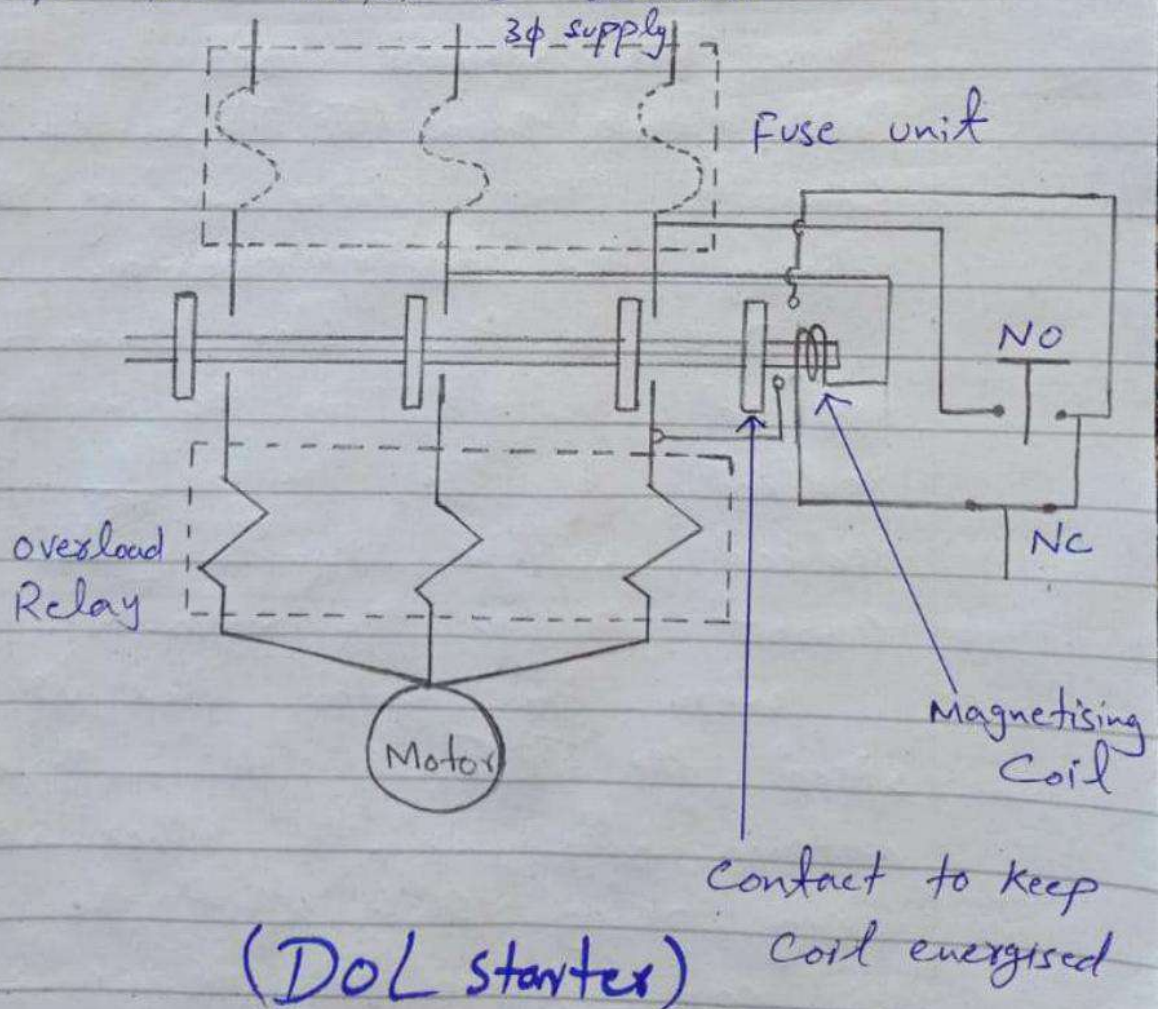 3ϕ supply
Fuse unit
NO
NC
overload
Relay
Motor
Magnetising
Coil
Contact to keep
Coil energised
(DOL starter)